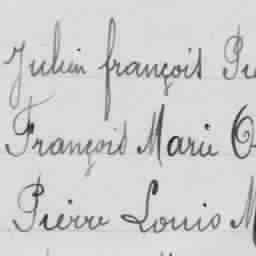 Julien françois
François Marie
Pierre Louis